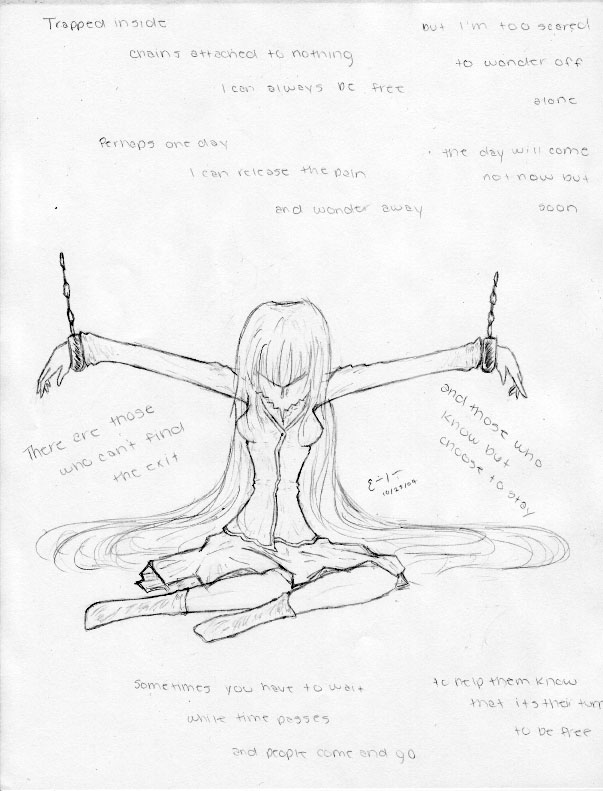 Trapped inside
chains attached to nothing
I can always be free
but I'm too scared
to wonder off
alone
Perhaps one day
I can release the pain
and wonder away
the day will come
not now but
soon
There are those
who can't find
the exit
and those who
know but
choose to stay
10/29/04
Sometimes you have to wait
while time passes
and people come and go
to help them know
that its their turn
to be free